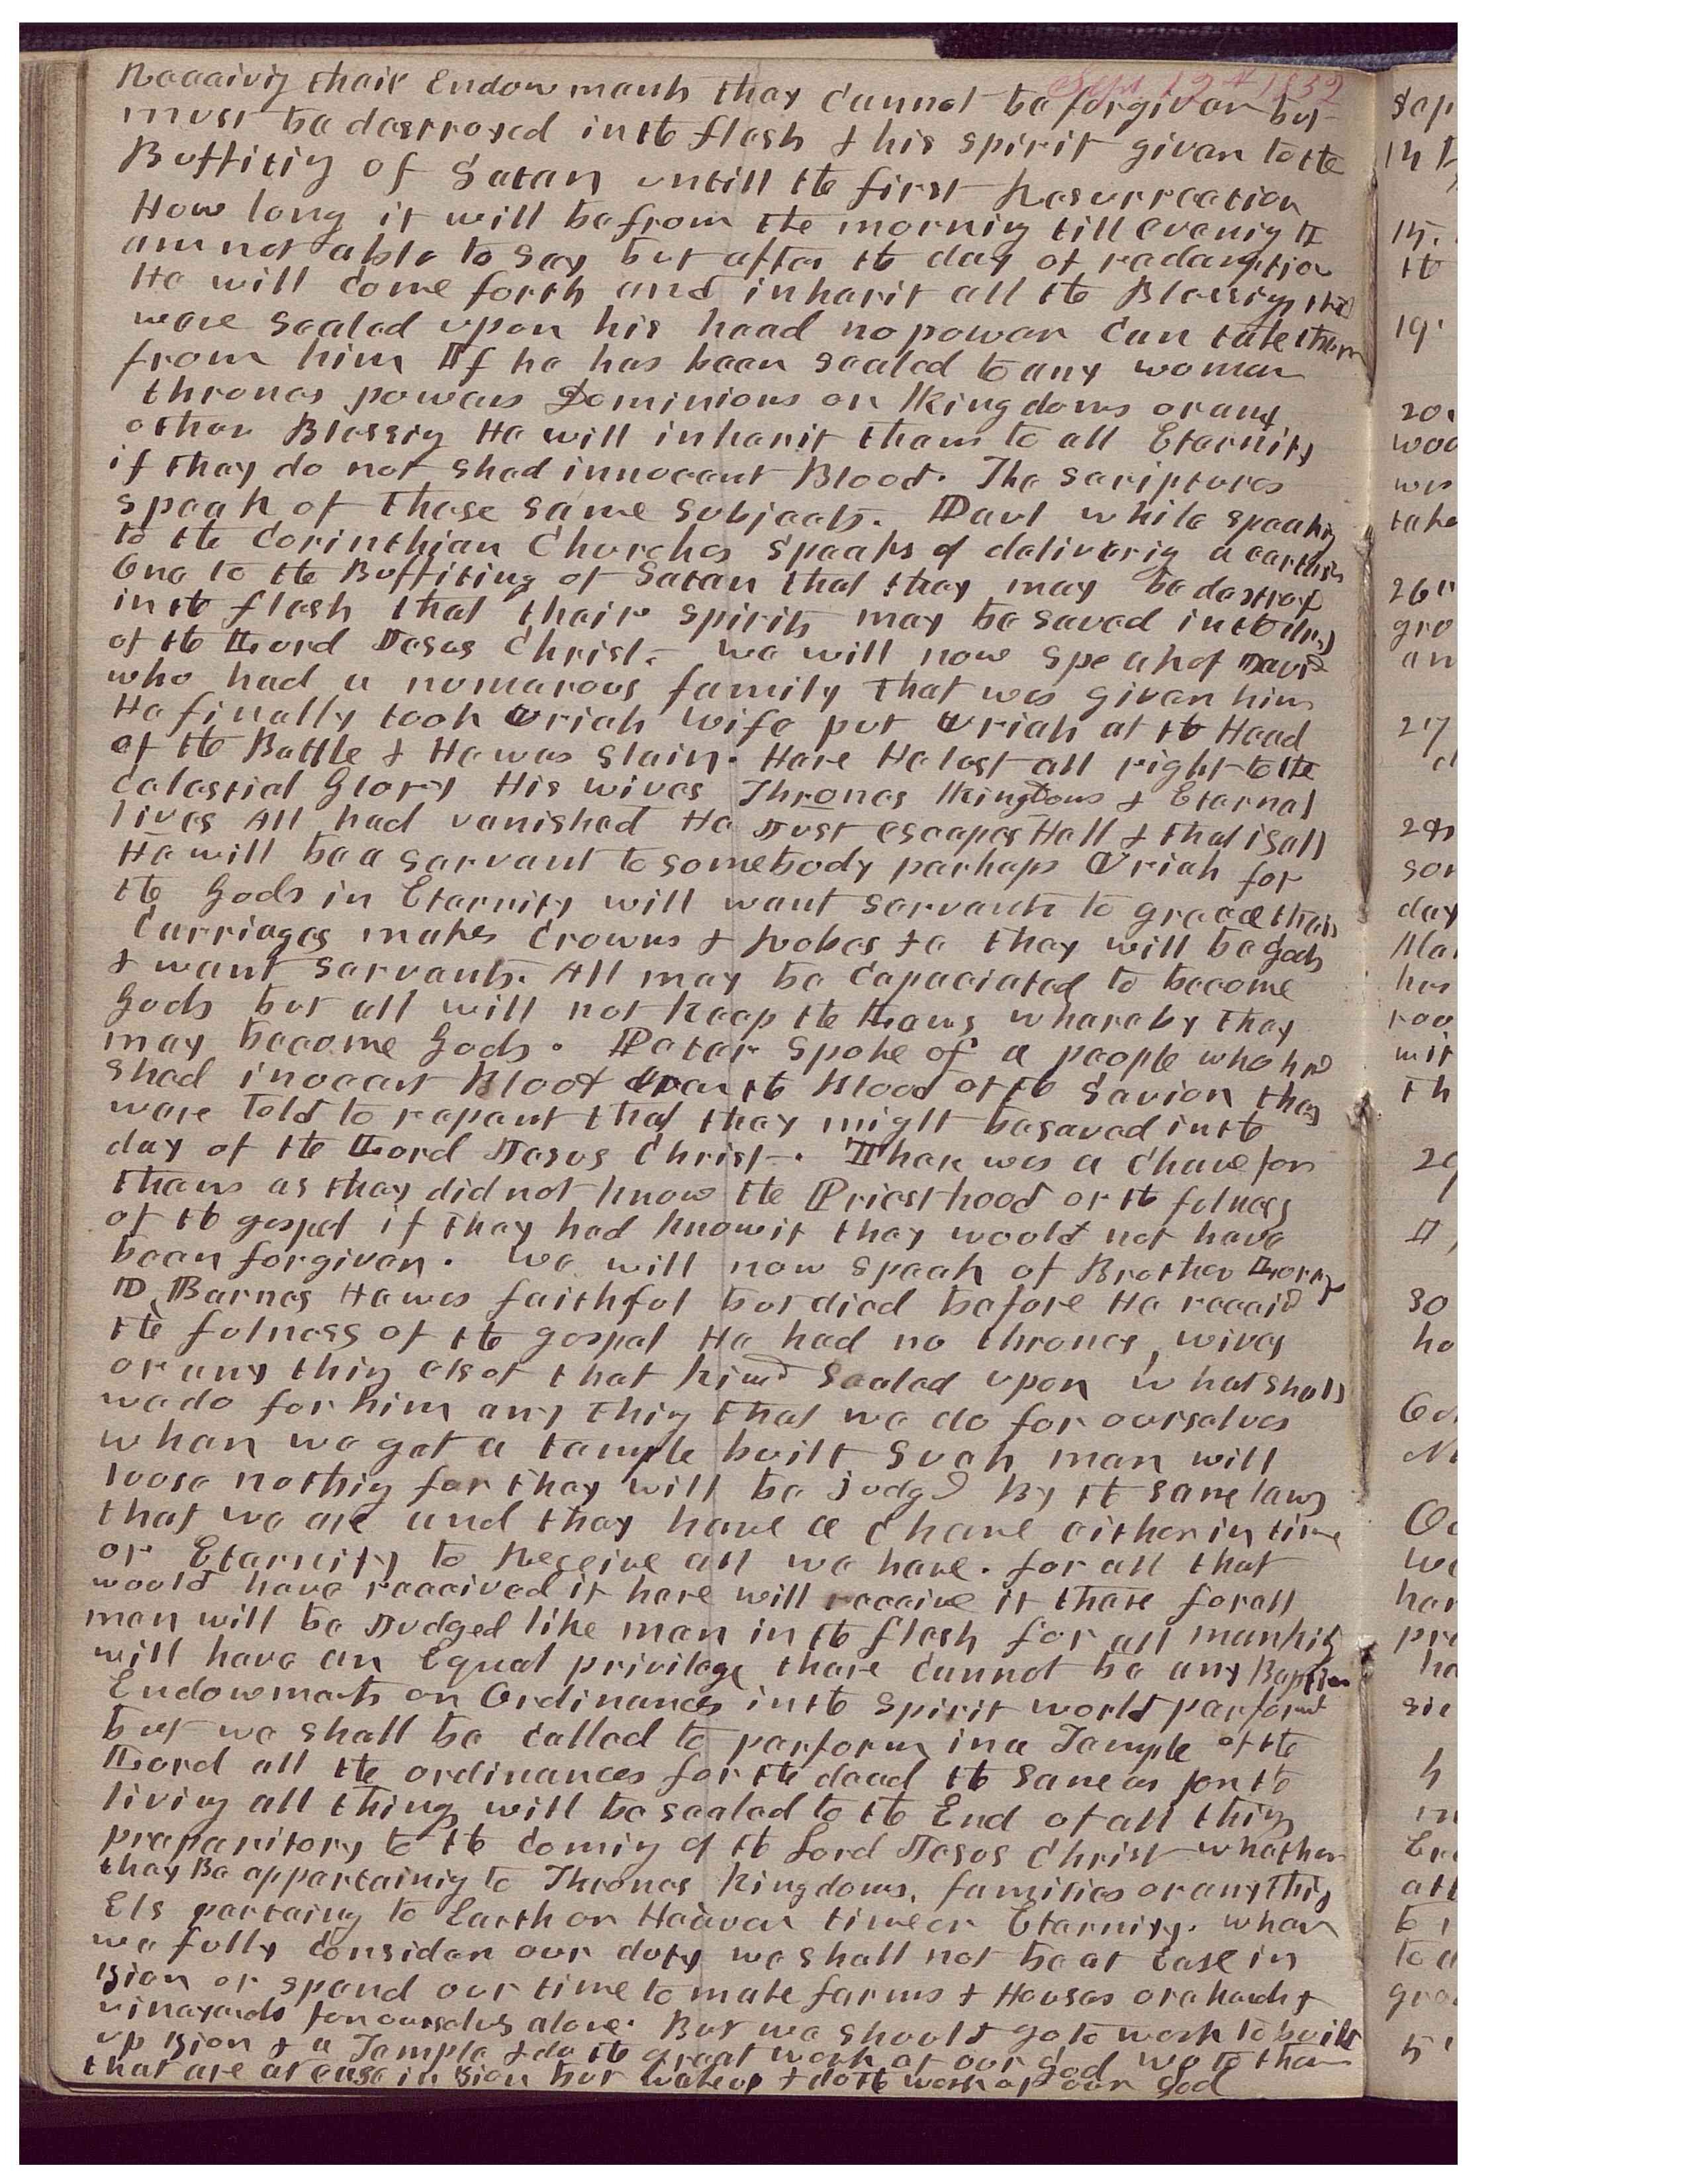 Sept 12th 1852
Receiving their Endowments they cannot be forgiven but
must be destroyed in the flesh & his spirit given to the
Buffitig of Satan untill the first Resurrection
How long it will be from the mornig till evenig I
am not able to say but after the day of redemption
He will come forth and inherit all the Blessigs that
were sealed upon his head no power can take them
from him If he has been sealed to any woman
thrones powers Dominions or Kingdoms or any
other Blessig He will inherit them to all Eternity
if they do not shed innocent Blood. The scriptures
speak of these same subjects. Paul while speakig
to the Corinthian Churches speaks of deliverig a certain
one to the Buffiting of Satan that they may be destroyed
in the flesh that their spirits may be saved in the day
of the Lord Jesus Christ. We will now speak of David
who had a numerous family that was given him
He finally took Uriah wife put Uriah at the Head
of the Battle & He was slain. Here He lost all right to the
Celestial Glory His wives Thrones Kingdoms & Eternal
lives All had vanished He Just escapes Hell & that is all
He will be a servant to somebody perhaps Uriah for
the Gods in Eternity will want servants to greace their
Carriages makes Crowns & Robes &c they will be gods
& want servants. All may be capaciated to become
Gods but all will not keep the Laws whareby they
may become Gods. Peter spoke of a people who had
shed inocent Blood even the Blood of the Savior they
were told to repent that they might be saved in the
day of the Lord Jesus Christ. Their was a chance for
them as they did not know the Priesthood or the fulness
of the gospel if they had know it they would not have
been forgiven. We will now speak of Brother Lorenzo
D Barnes He was faithful but died before He receivd
the fulness of the gospel He had no thrones, wives
or any thing els of that kind sealed upon what shall
we do for him any thig that we do for ourselves
when we get a temple built such men will
loose nothig for they will be judgd By the same laws
that we are and they have a chance either in time
or Eternity to Receive all we have. for all that
would have received it here will receive it there for all
men will be Judged like men in the flesh for all mankid
will have an Equal privilege there cannot be any Baptism
Endowments or Ordinances in the spirit world performd
but we shall be called to perform in a Temple of the
Lord all the ordinances for the dead the same as for the
living all things will be sealed to the End of all thigs
preparitory to the comig of the Lord Jesus Christ whether
they Be appertainig to Thrones Kingdoms, families or any thig
Els pertaing to Earth or Heaven time or Eternity. when
we fully consider our duty we shall not be at Ease in
Zion or spend our time to make farms & Houses orchards &
vineyards for ourselves alone. But we should go to work to build
up Zion & a Temple & do the great work of our God wo to them
that are at ease in Zion but wake up & do the work of our God
Sep
14
15.
the
19
20
woo
wes
take
26
gro
an
27
28
son
day
Mar
has
roo
wit
th
29
I
30
ho
Con
Oc
we
har
pre
ha
sie
h
in
Bre
att
to
to a
gre
5